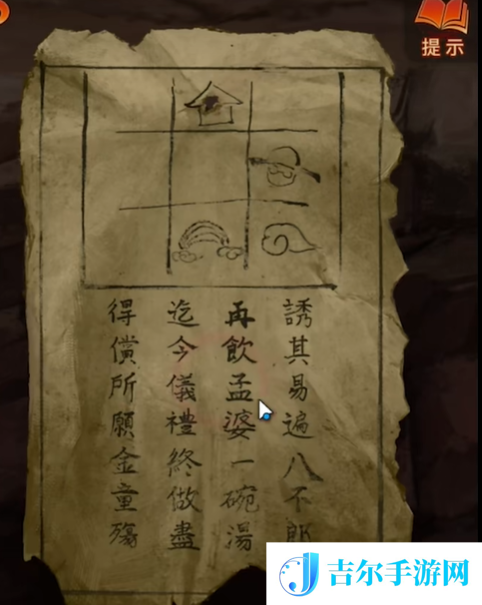 提示
誘其易遍八不郎
再飲孟婆一碗湯
迄今儀禮終做盡
得償所願金童殤
吉尔手游网